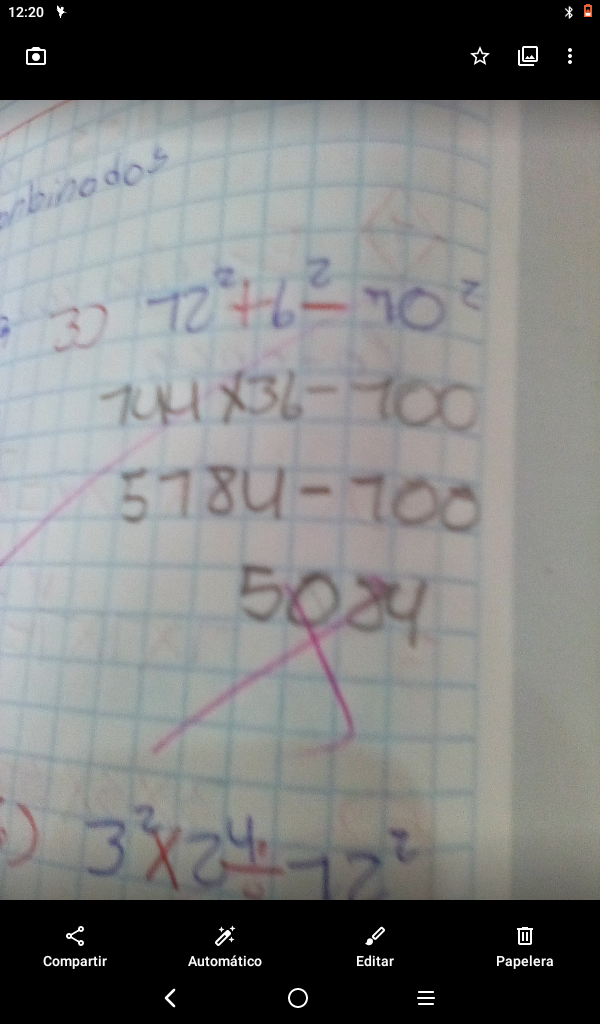 12:20
ombinados
3) 12² + 6² - 10²
144 x 36 - 100
5184 - 100
5084
) 3² x 2⁴ ÷ 12²
Compartir Automático Editar Papelera